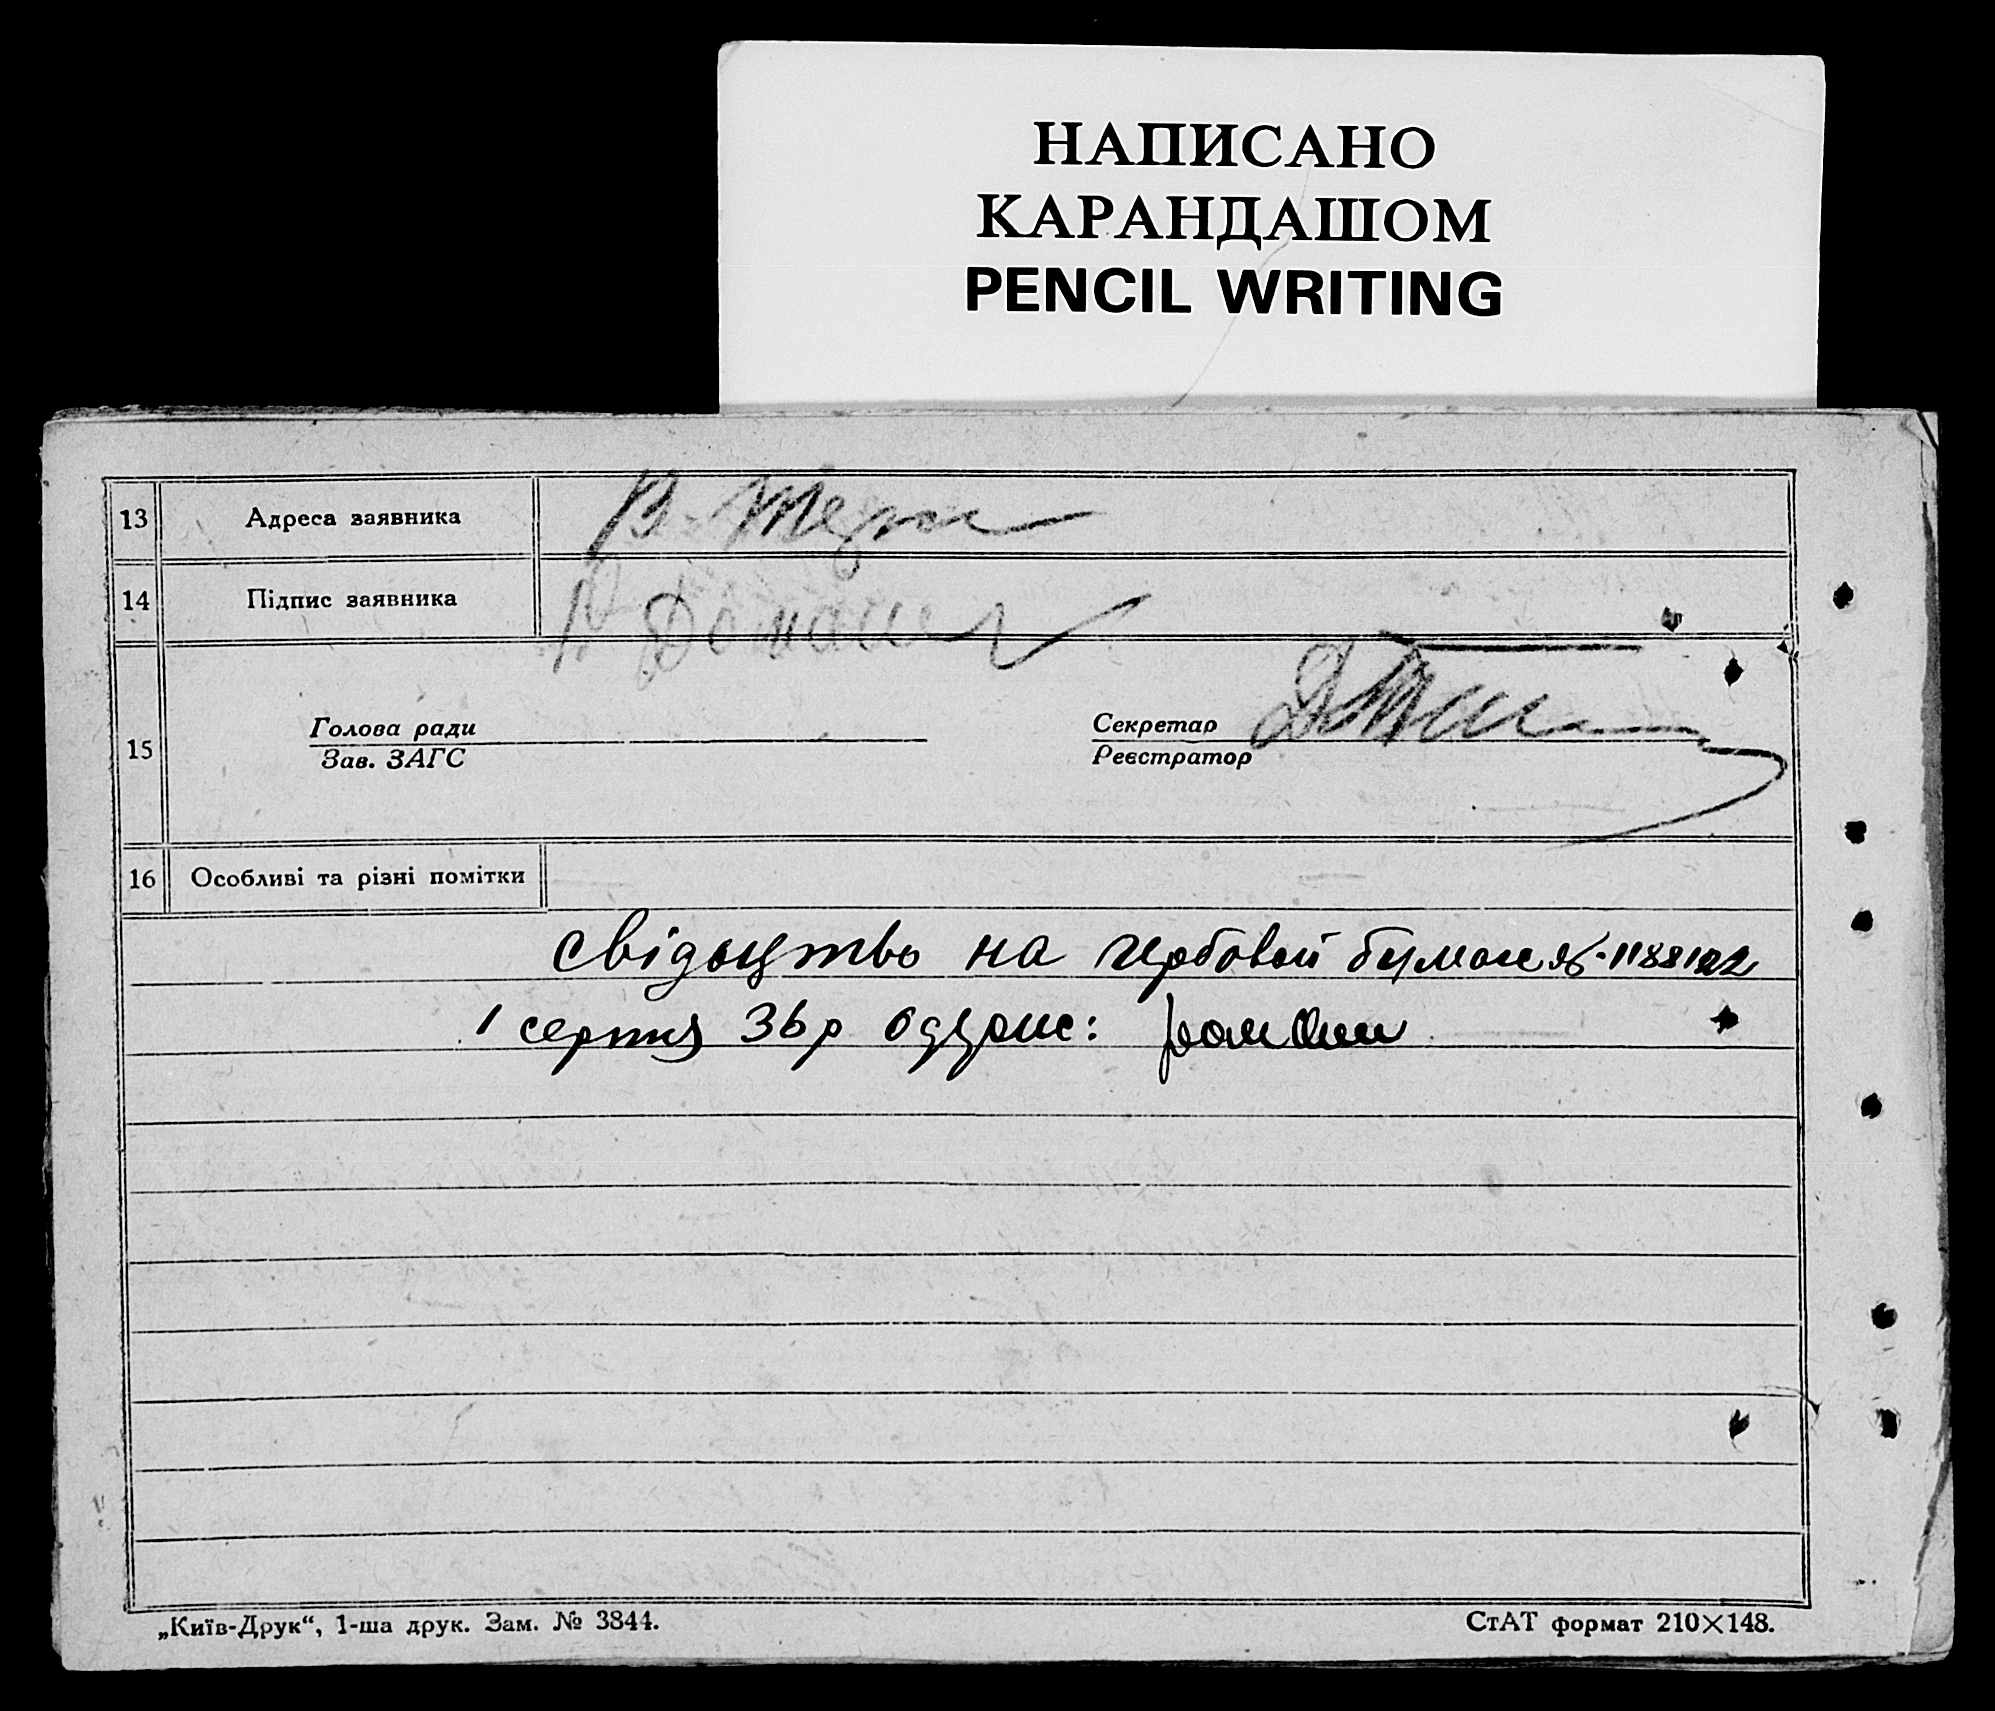 НАПИСАНО
КАРАНДАШОМ
PENCIL WRITING
13 Адреса заявника В.
14 Підпис заявника
Голова ради Секретар
15
Зав. ЗАГС Реєстратор
16 Особливі та різні помітки
свідоцтво на гербовой бумаге 1188122
1 серпня 36 р одержав:
„Київ-Друк“, 1-ша друк. Зам. № 3844. СтАТ формат 210×148.